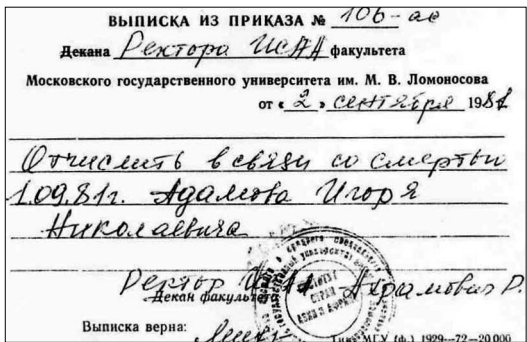 ВЫПИСКА ИЗ ПРИКАЗА № 106-ас
Декана Ректора ИСАА факультета
Московского государственного университета им. М. В. Ломоносова
от « 2 » сентября 1981
Отчислить в связи со смертью
1.09.81г. Адамова Игоря
Николаевича
Ректор ИСАА Ахрамович Р.
Декан факультета
Выписка верна:
Тип. МГУ (ф.) 1929—72—20 000